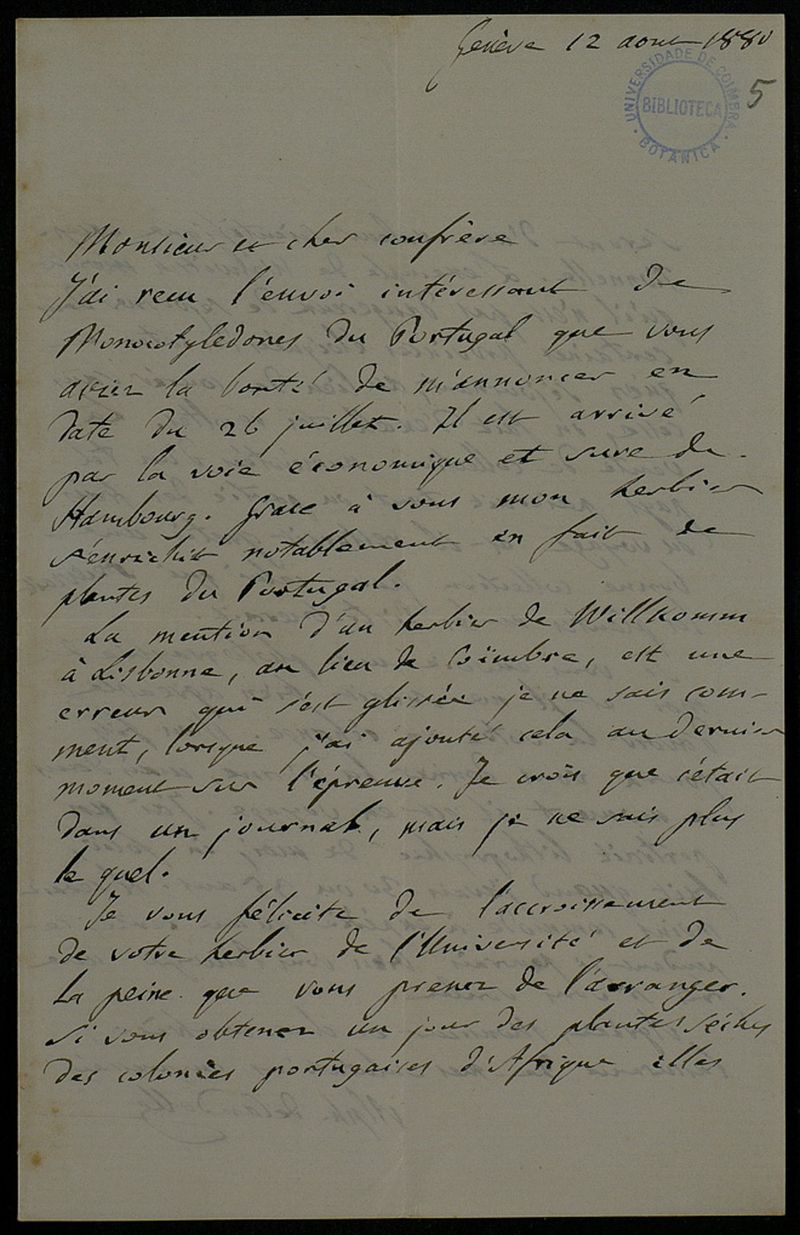 Genève 12 aout 1880
UNIVERSIDADE DE COIMBRA
BIBLIOTECA
BOTANICA
5
Monsieur et cher confrère
J'ai recu l'envoi intéressant de
Monocotylédones du Portugal que vous
aviez la bonté de m'annoncer en
date du 26 juillet. Il est arrivé
par la voie économique et sure de
Hambourg. Grace à vous mon herbier
s'enrichit notablement en fait de
plantes du Portugal.
La mention d'un herbier de Willkomm
à Lisbonne, au lieu de Coïmbre, est une
erreur qui s'est glissée je ne sais com-
ment, lorsque j'ai ajouté cela au dernier
moment sur l'épreuve. Je crois que c'était
dans un journal, mais je ne sais plus
le quel.
Je vous félicite de l'accroissement
de votre herbier de l'Université et de
la peine que vous prenez de l'arranger.
Si vous obtenez un jour des plantes sèches
des colonies portugaises d'Afrique elles